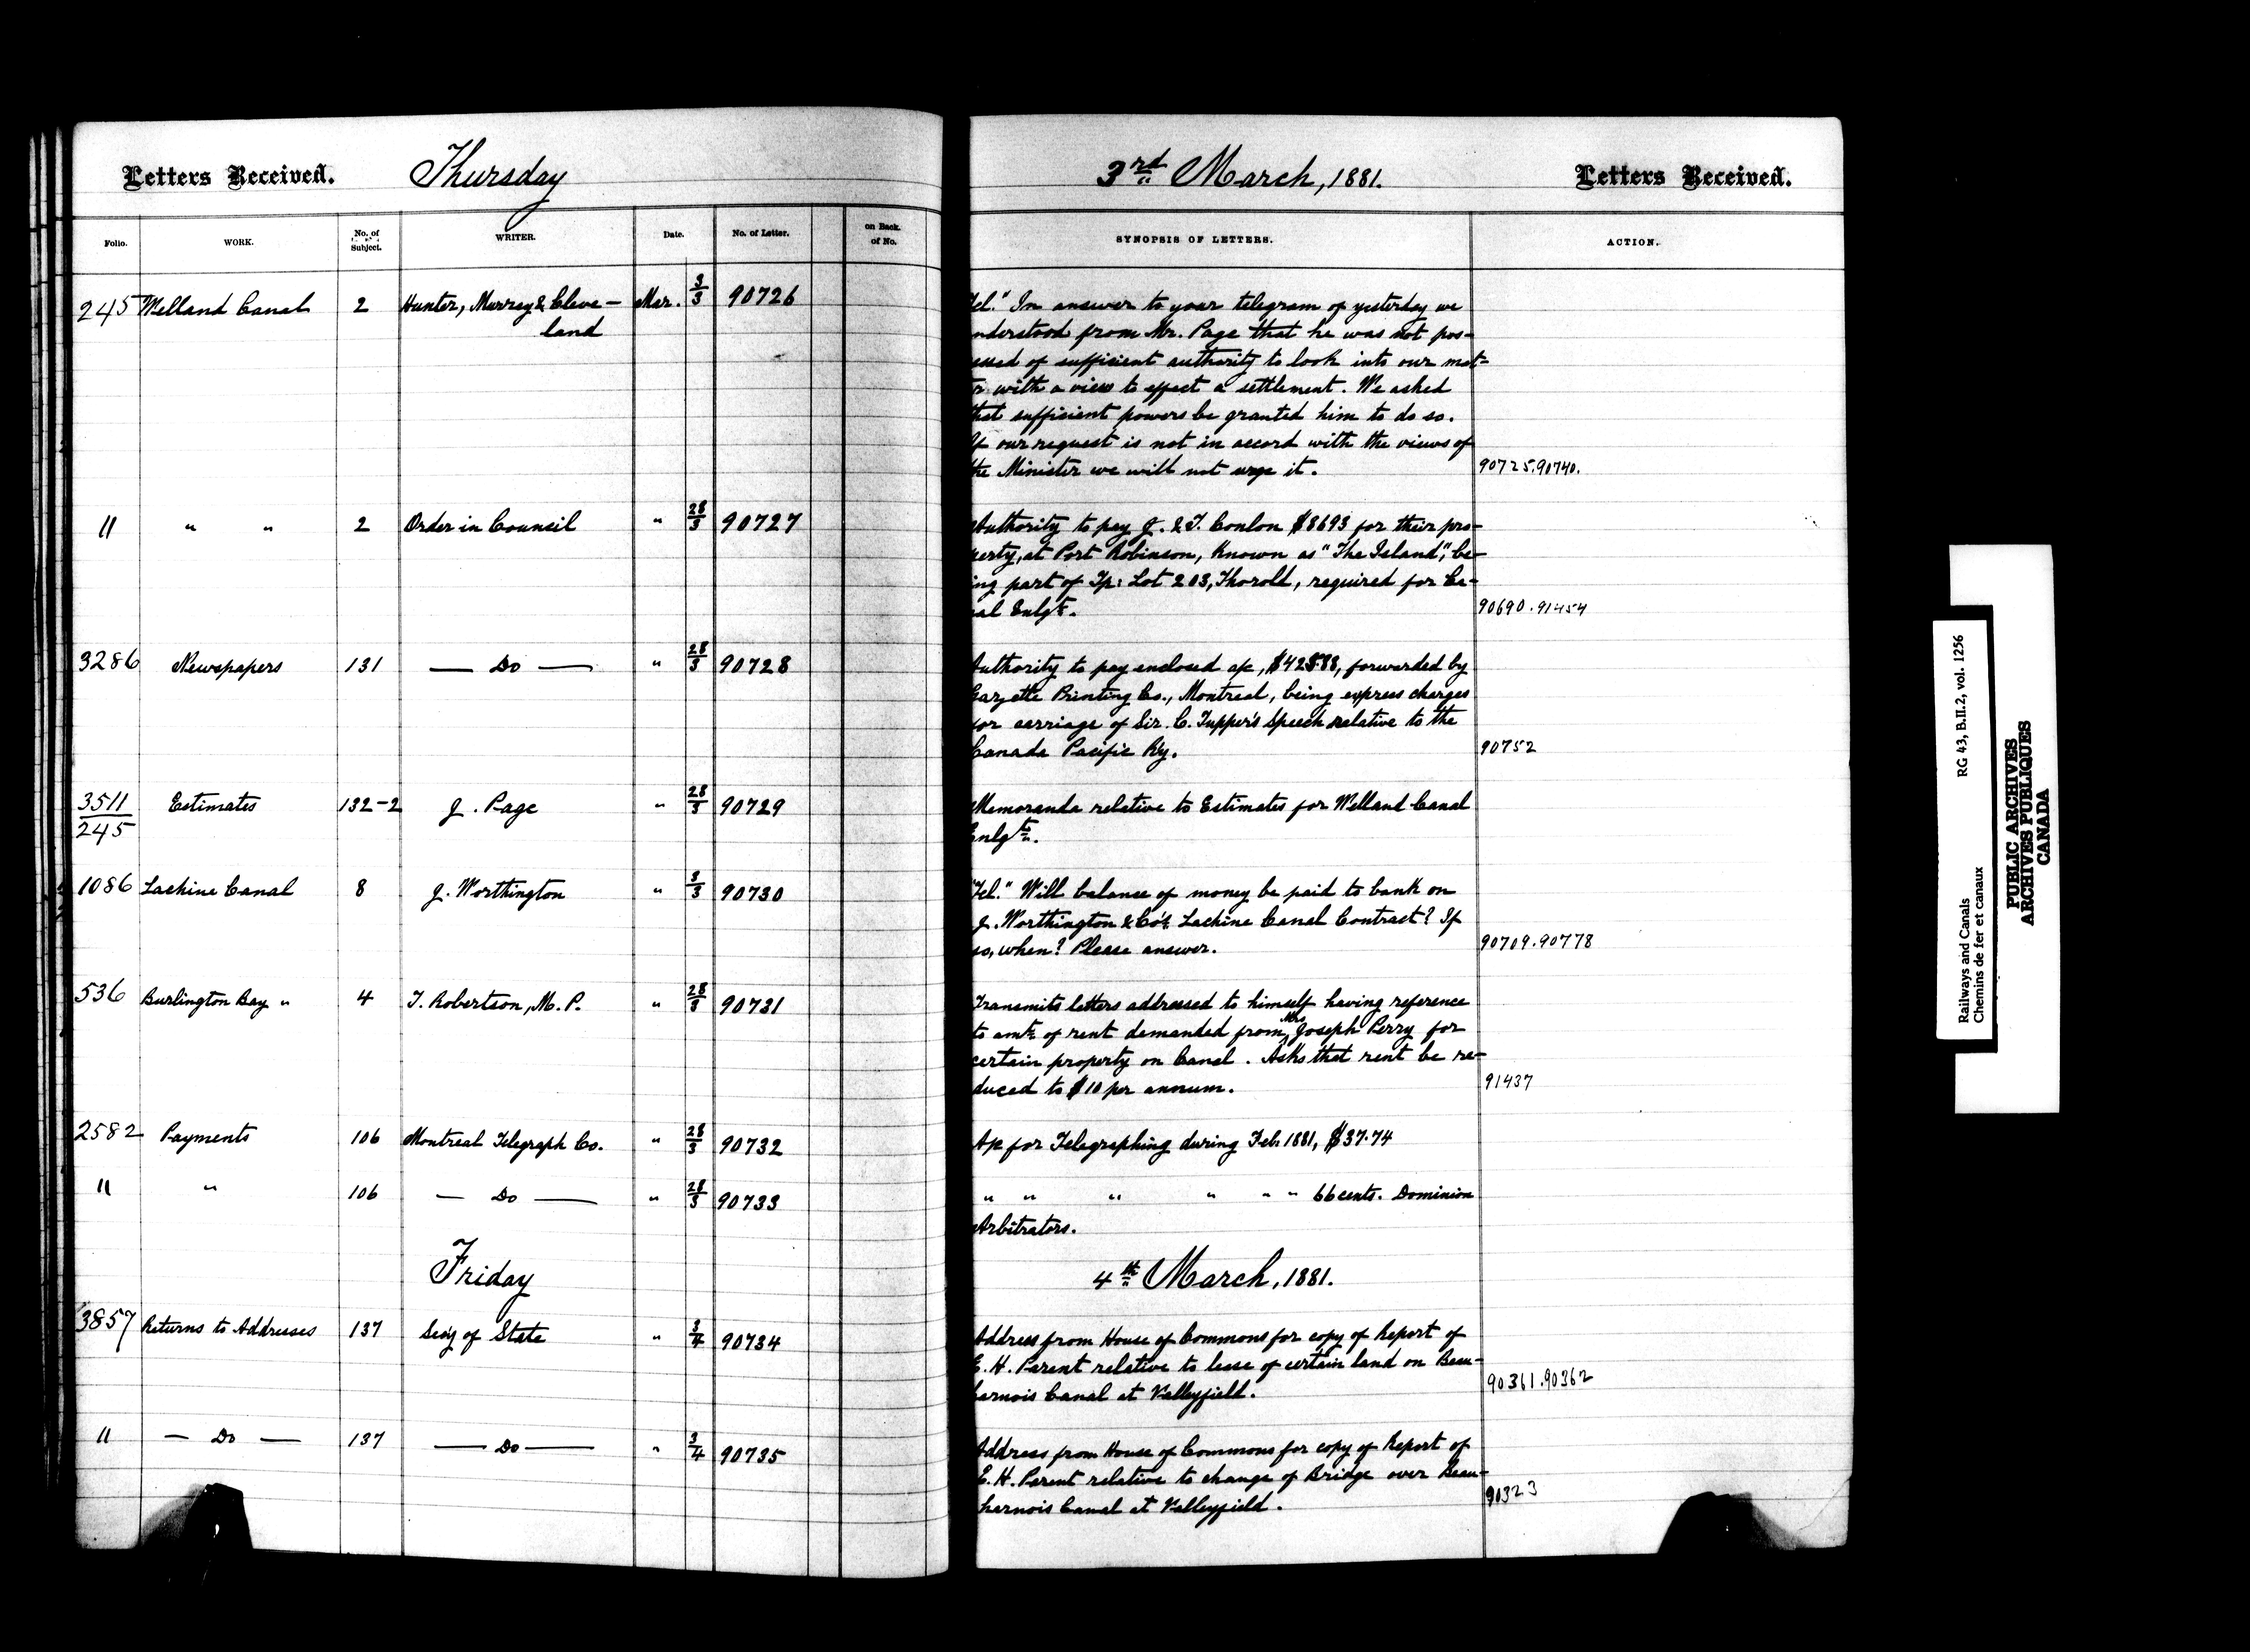 Letters Received.
Thursday
3rd March, 1881.
Letters Received.
Folio.
WORK.
No. of
Subject.
WRITER.
Date.
No. of Letter.
on Back.
of No.
SYNOPSIS OF LETTERS.
ACTION.
245 Welland Canal 2 Hunter, Murray & Cleve- Mar. 3/3 90726
land
Tel." In answer to your telegram of yesterday we
nderstood from Mr. Page that he was not pos-
essed of sufficient authority to look into our mat-
r with a view to effect a settlement. We asked
that sufficient powers be granted him to do so.
If our request is not in accord with the views of
the Minister we will not urge it. 90725.90740.
11 " " 2 Order in Council " 28/3 90727
Authority to pay J. & T. Conlon $8693 for their pro-
perty, at Port Robinson, Known as "The Island", be-
ing part of Tp: Lot 203, Thorold, required for Ca-
nal Enlgt. 90690.91454
3286 Newspapers 131 — Do — " 28/3 90728
Authority to pay enclosed a/c, $428.88, forwarded by
Gazette Printing Co., Montreal, being express charges
for carriage of Sir C. Tupper's Speech relative to the
Canada Pacific Ry. 90752
3511/245 Estimates 132-2 J. Page " 28/3 90729
Memoranda relative to Estimates for Welland Canal
Enlgt.
1086 Lachine Canal 8 J. Worthington " 3/3 90730
"Tel." Will balance of money be paid to bank on
J. Worthington & Co's Lachine Canal Contract? If
so, when? Please answer. 90709.90778
536 Burlington Bay " 4 T. Robertson, M.P. " 28/3 90731
Transmits letters addressed to himself having reference
to amt. of rent demanded from Mrs Joseph Perry for
certain property on Canal. Asks that rent be re-
duced to $10 per annum. 91437
2582 Payments 106 Montreal Telegraph Co. " 28/3 90732
A/c for Telegraphing during Feb. 1881, $37.74
11 " 106 — Do — " 28/3 90733
" " " " " " 66 cents. Dominion
Arbitrators.
Friday
4th March, 1881.
3857 Returns to Addresses 137 Sec'y of State " 3/4 90734
Address from House of Commons for copy of Report of
E. H. Parent relative to lease of certain land on Beau-
harnois Canal at Valleyfield. 90361.90362
11 — Do — 137 — Do — " 3/4 90735
Address from House of Commons for copy of Report of
E. H. Parent relative to change of Bridge over Beau-
harnois Canal at Valleyfield. 90323
Railways and Canals RG 43, B.II.2, vol. 1256
Chemins de fer et canaux
PUBLIC ARCHIVES
ARCHIVES PUBLIQUES
CANADA